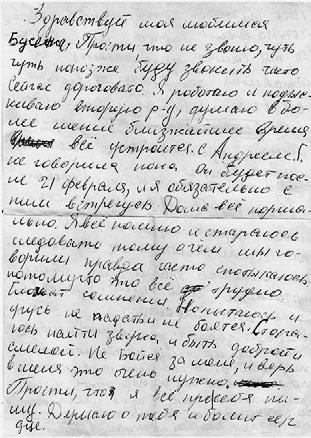 Здравствуй моя любимая
Бусечка, Прости что не звоню, чуть
чуть попозже буду звонить часто
сейчас дороговато. Я работаю и подыс-
киваю вторую р-у, думаю в бо-
лее менее ближайшее время
всё устроится. С Андреем Г.
не говорила пока. Он будет пос-
ле 21 февраля, и я обязательно с
ним встречусь. Дома всё норма-
льно. Я всё помню и стараюсь
следовать тому о чём мы го-
ворили правда часто спотыкаюсь,
потому что это всё трудно,
сомнения. Но пытаюсь и
учусь не и не бояться. Стара-
юсь найти и быть доброй и
смелой. Не бойся за меня, и верь
в меня это очень нужно.
Прости, что я всё про себя пи-
шу. Думаю о тебя и болит сер-
дце.